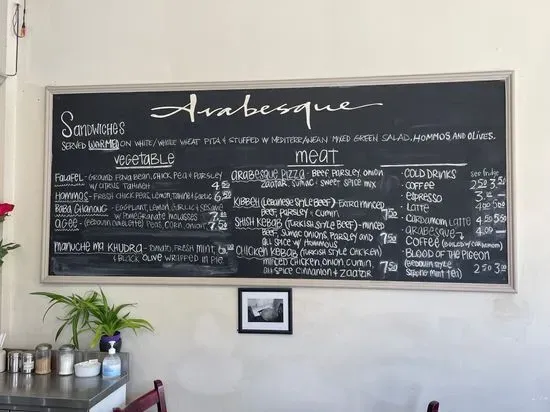 Arabesque
Sandwiches
SERVED WARMED ON WHITE/WHOLE WHEAT PITA & STUFFED W MEDITERR/NEAN MIXED GREEN SALAD, HOMMOS AND OLIVES.
VEGETABLE
FALAFEL - GROUND FAVA BEAN, CHICK PEA & PARSLEY
W/ CITRUS TAHINEH
HOMMOS - FRESH CHICK PEAS, LEMON, TAHINEH & GARLIC 6.50
BABA GHANOUG - EGGPLANT, LEMON, GARLIC & SESAME
W/ POMEGRANATE MOLASSES 7.50
PEAS, CORN, ONION
MANUCHE MA KHUDRA - TOMATO, FRESH MINT
& BLACK OLIVE WRAPPED IN PIE
meat
ARABESQUE PIZZA - BEEF, PARSLEY, ONION
ZAATAR, SUMAC & SWEET SPICE MIX
KIBBEH (LEBANESE STYLE BEEF) - EXTRA MINCED
BEEF, PARSLEY & CUMIN 7.50
SHISH KEBAB (TURKISH STYLE) - MINCED
BEEF, SUMAC, ONIONS, PARSLEY AND
ALL SPICE W/ HOMMOUS 7.50
CHICKEN KEBAB (TURKISH STYLE CHICKEN)
MINCED CHICKEN, ONION, CUMIN,
ALL SPICE CINNAMON & ZAATAR 7.50
- COLD DRINKS see fridge
- COFFEE 2.50 3.50
- ESPRESSO
- LATTE
- CARDAMOM LATTE
- ARABESQUE
COFFEE (BOILED W/ CARDAMOM)
- BLOOD OF THE PIGEON
(BEDOUIN STYLE
TEA) 2.50